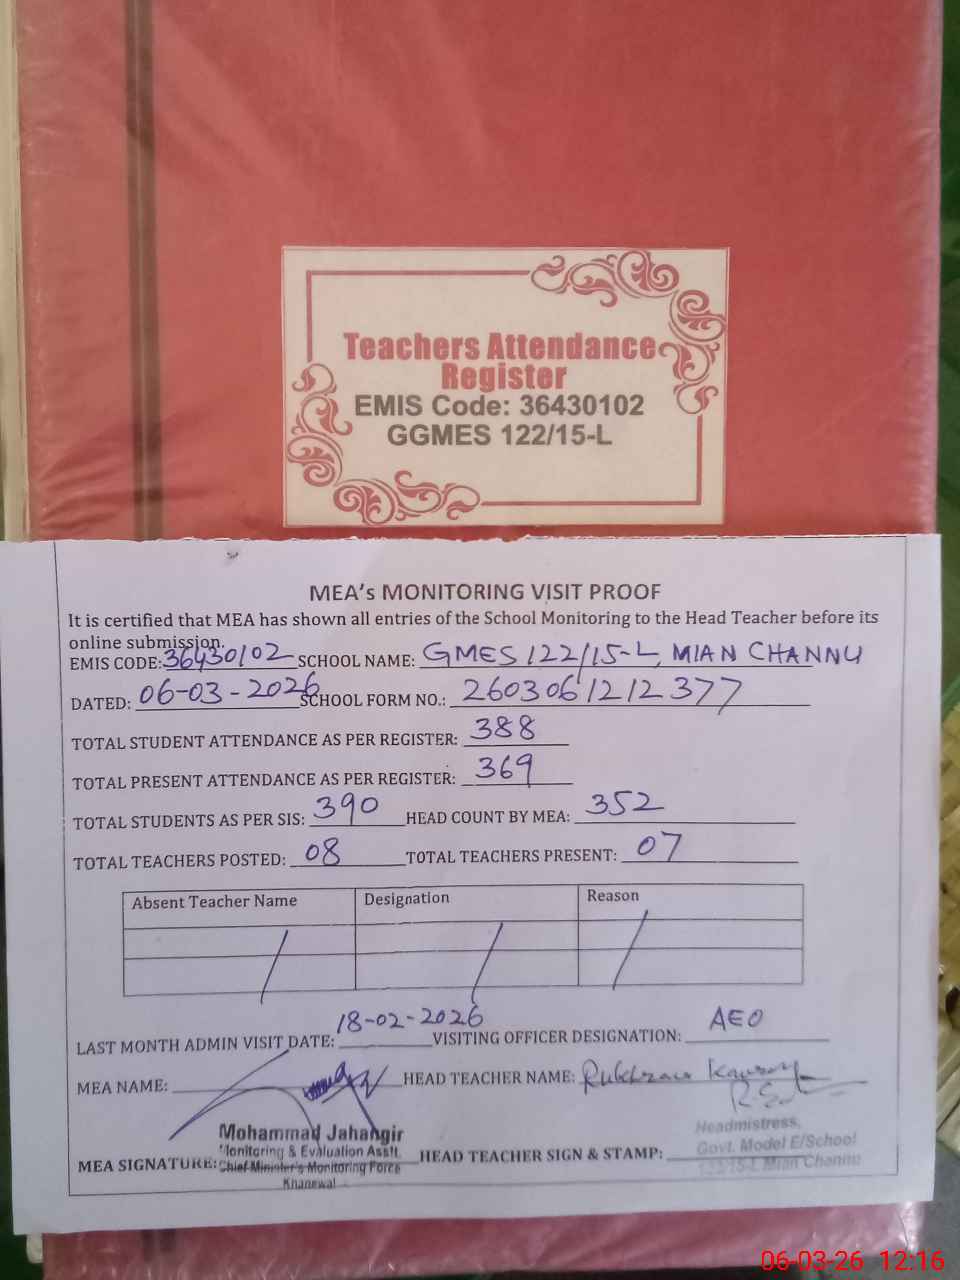 Teachers Attendance
Register
EMIS Code: 36430102
GGMES 122/15-L
MEA's MONITORING VISIT PROOF
It is certified that MEA has shown all entries of the School Monitoring to the Head Teacher before its
online submission.
EMIS CODE: 36430102 SCHOOL NAME: GMES 122/15-L, MIAN CHANNU
DATED: 06-03-2026 SCHOOL FORM NO.: 2603061212377
TOTAL STUDENT ATTENDANCE AS PER REGISTER: 388
TOTAL PRESENT ATTENDANCE AS PER REGISTER: 369
TOTAL STUDENTS AS PER SIS: 390 HEAD COUNT BY MEA: 352
TOTAL TEACHERS POSTED: 08 TOTAL TEACHERS PRESENT: 07
Absent Teacher Name Designation Reason
LAST MONTH ADMIN VISIT DATE: 18-02-2026 VISITING OFFICER DESIGNATION: AEO
MEA NAME: HEAD TEACHER NAME: Rukhsana Kausar
MEA SIGNATURE: HEAD TEACHER SIGN & STAMP:
Mohammad Jahangir
Monitoring & Evaluation Asstt.
Chief Minister's Monitoring Force
Khanewal
Headmistress,
Govt. Model E/School
122/15-L Mian Channu
06-03-26 12:16